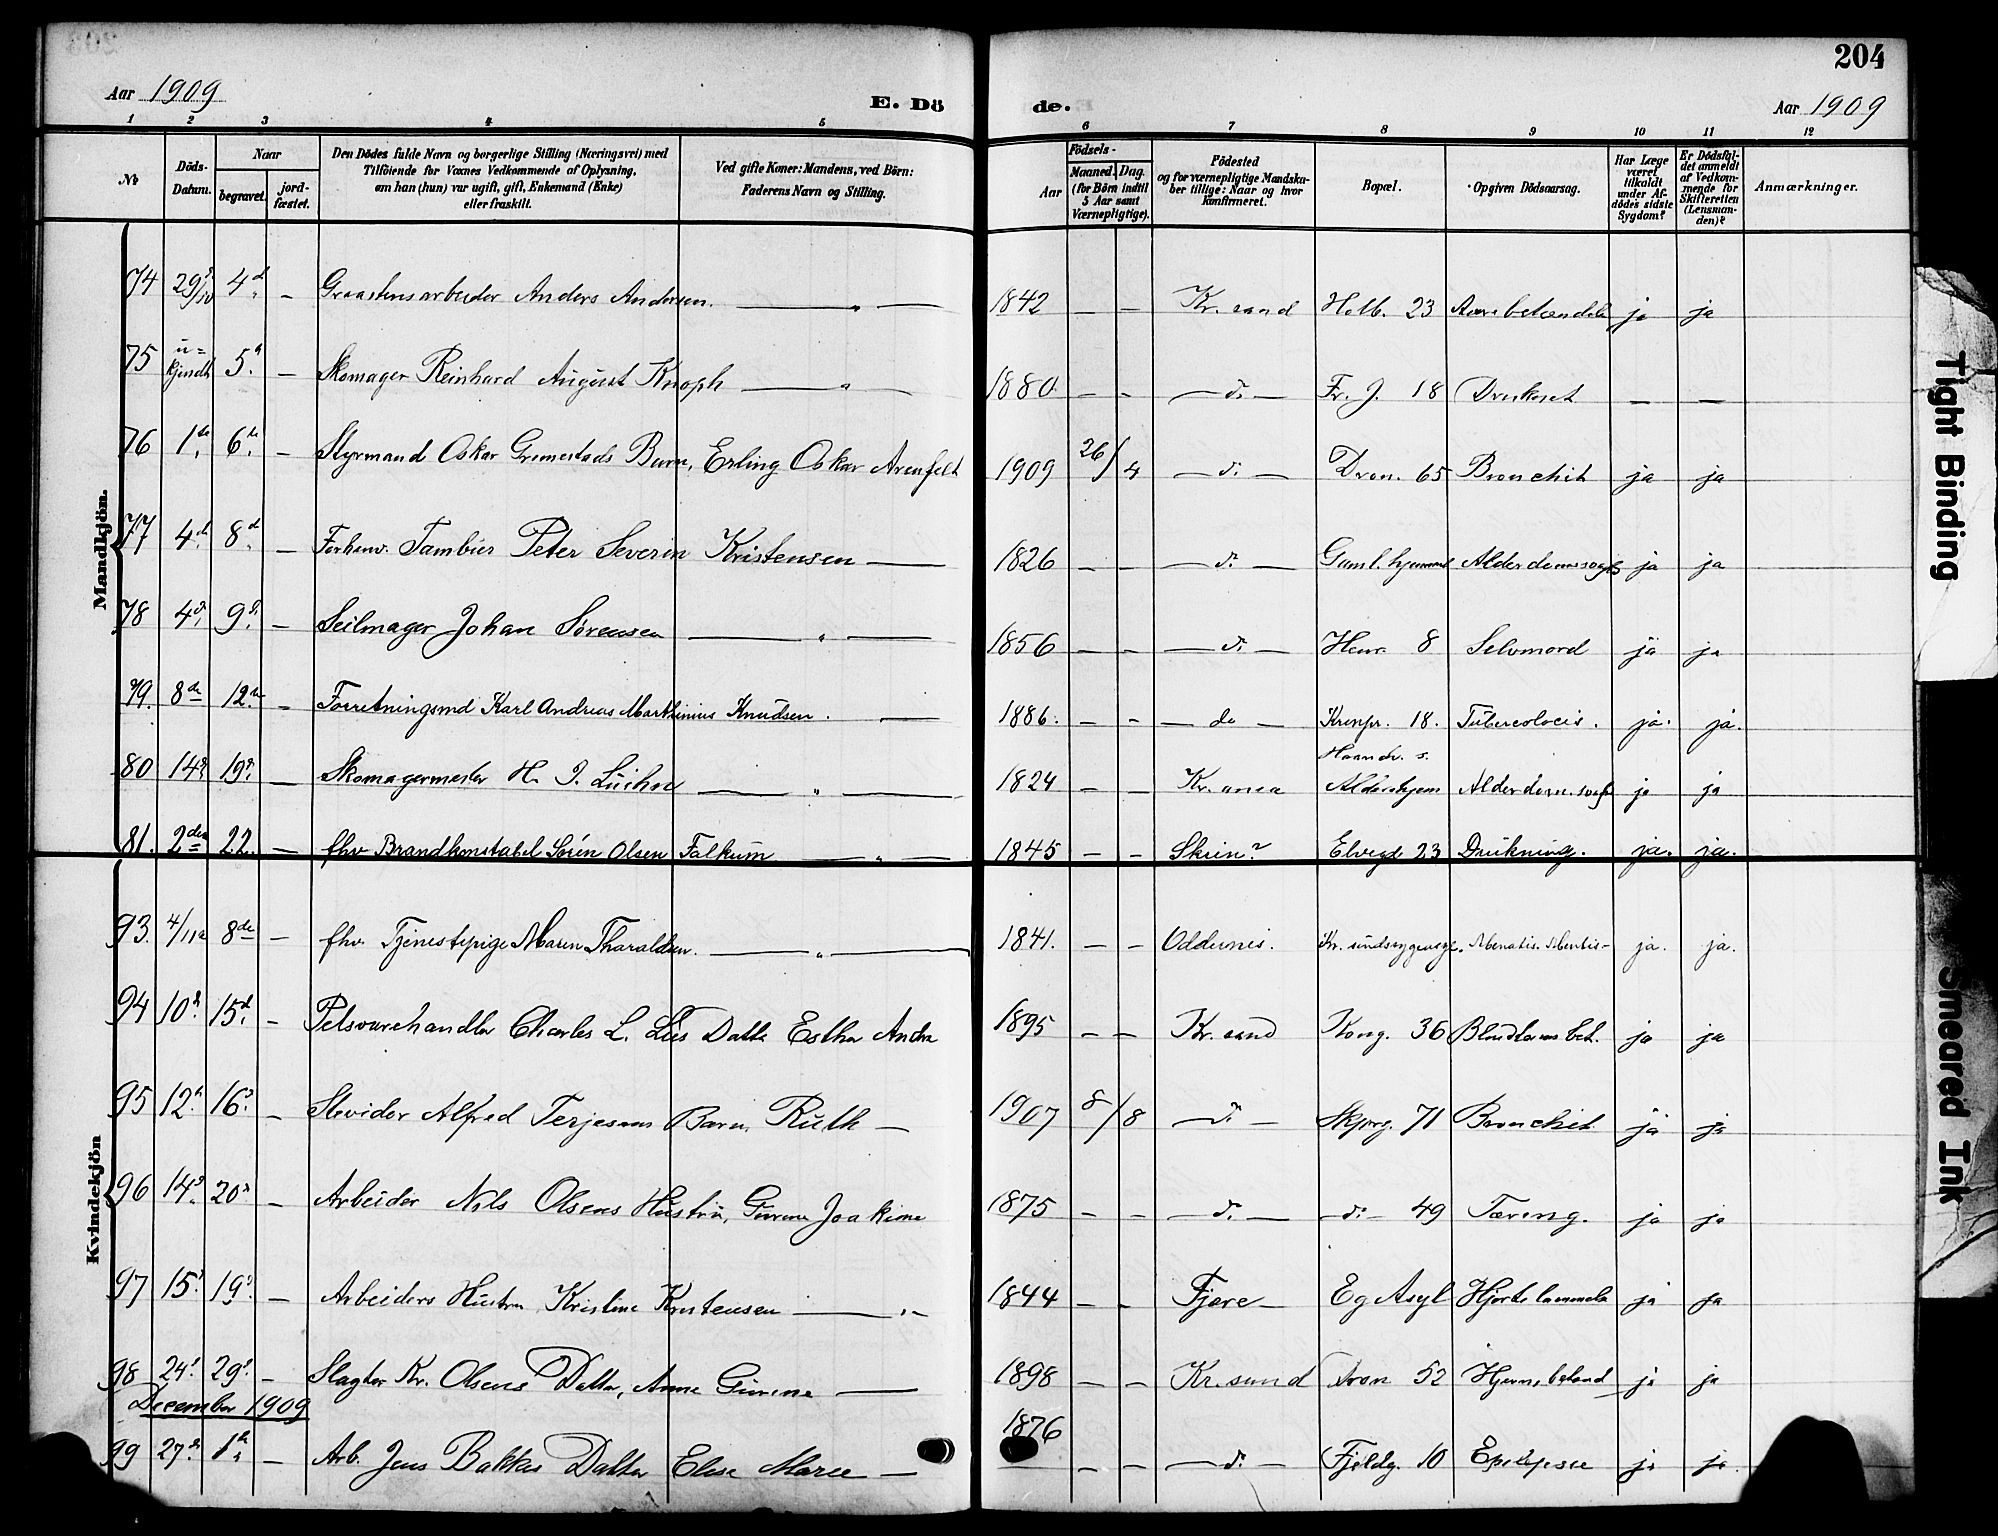 204
Aar 1909
E. Dö
de.
Aar 1909
1 2 3 4 5 6 7 8 9 10 11 12
№
Döds-Datum.
Naar
begravet.
jord-fæstet.
Den Dödes fulde Navn og borgerlige Stilling (Næringsvei) med
Tilföiende for Voxnes Vedkommende af Oplysning,
om han (hun) var ugift, gift, Enkemand (Enke)
eller fraskilt.
Ved gifte Koner: Mandens, ved Börn:
Faderens Navn og Stilling.
Födsels-
Aar
Maaned. Dag.
(for Börn indtil
5 Aar samt
Værnepligtige).
Födested
og for værnepligtige Mandska-
ber tillige: Naar og hvor
konfirmeret.
Bopæl.
Opgiven Dödsaarsag.
Har Læge
været
tilkaldt
under Af-
dödes sidste
Sygdom?
Er Dödsfal-
det anmeldt
af Vedkom-
mende for
Skifteretten
(Lensman-
den)?
Anmærkninger.
Mandkjön.
74 29/10 4d. — Graastensarbeider Anders Andersen. — „ — 1842 — — Kr.sand Holb. 23 ja ja
75 u=kjendt 5 — Skomager Reinhard August Knoph — „ — 1880 — — — d. — Fr. J. 18 Druknet — —
76 1de 6de — Styrmand Oskar Grimestads Barn, Erling Oskar Arenfelt 1909 26/4 — d. — Dron. 65 Bronchit ja ja
77 4d. 8d. — Forhenv. Tambur Peter Severin Kristensen — 1826 — — — d. — Gaml.hjemmet ja ja
78 4d. 9d. — Seilmager Johan Sørensen — „ — 1856 — — — d. — Henr. 8 Selvmord ja ja
79. 8de 12te — Forretningsmd Karl Andreas Marthinius Knudsen. — 1886. — — — do — Kronpr. 18. ja. ja.
80 14d. 19d. — Skomagermester H. J. — „ — 1824 — — Kr.ania Haandv. s. Aldershjem ja ja
81. 2den 22. — fhv Brandkonstabel Sørén Olsen Falkum — „ — 1845 — — Skien? Elvegd. 23 Drukning. ja. ja.
Kvindekjön
93. 4/11 8de — fhv. Tjenestepige Maren Tharaldsen. — „ — 1841. — — Oddernes. ja. ja.
94 10d 15d. — Pelsvarehandler Charles L. Datter Esther Andrea 1895 — — Kr.sand Kong. 36 ja ja
95 12. 16. — Alfred Terjesens Barn, Ruth — 1907 8/8 — d. — Skjærg. 71 Bronchit ja ja
96 14. 20. — Arbeider Nils Olsens Hustru, Gurine Joakime 1875 — — — d. — — d. — 49 Tæring. ja ja
97 15. 19. — Arbeiders Hustru Kristine Kristensen — „ — 1844 — — Fjære — Eg Asyl ja ja
98 24. 29. — Slagter Kr. Olsens Datter, Anne Gurine — 1898 — — Kr.sund Dron 52 ja ja
December 1909
99 27. 1. — Arb. Jens Bakkes Datter Elise Marie — 1876 — — — d. — Fjeldg. 10 ja ja
Tight Binding
Smeared Ink